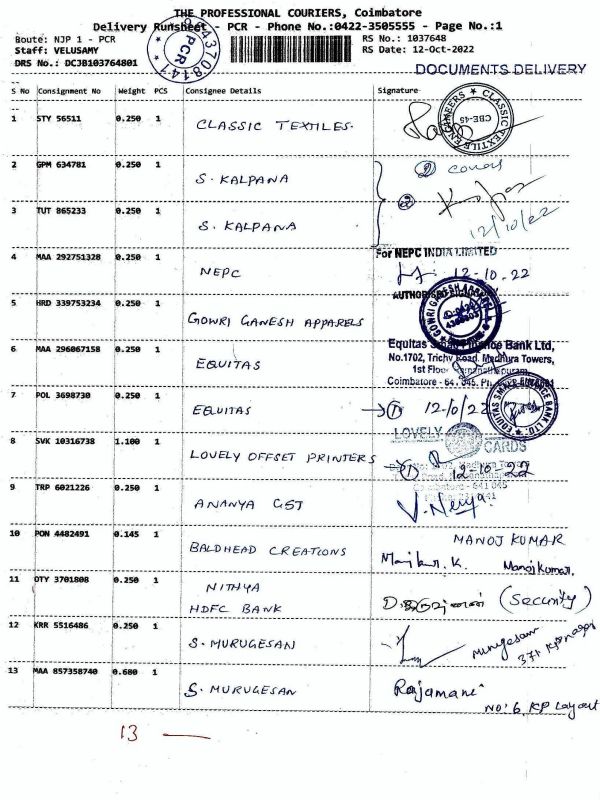 THE PROFESSIONAL COURIERS, Coimbatore
Delivery Runsheet - PCR - Phone No.:0422-3505555 - Page No.:1
Route: NJP 1 - PCR RS No.: 1037648
Staff: VELUSAMY RS Date: 12-Oct-2022
DRS No.: DCJB103764801
PCR
43708147
DOCUMENTS DELIVERY
S No Consignment No Weight PCS Consignee Details Signature
1 STY 56511 0.250 1 CLASSIC TEXTILES.
CLASSIC TEXTILE ENGINEERS
CBE-45
2 GPM 634781 0.250 1 S. KALPANA
② covers
②
3 TUT 865233 0.250 1 S. KALPANA
12/10/22
4 MAA 292751328 0.250 1 NEPC
For NEPC INDIA LIMITED
12-10-22
AUTHORISED
5 HRD 339753234 0.250 1 GOWRI GANESH APPARELS
GOWRI GANESH
6 MAA 296067158 0.250 1 EQUITAS
Equitas Small Finance Bank Ltd,
No.1702, Trichy Road, Madhura Towers,
1st Floor, Ramanathapuram,
Coimbatore - 641 045. Ph.
7 POL 3698730 0.250 1 EQUITAS
→ ① 12/10/22
EQUITAS SMALL FINANCE BANK LTD.
8 SVK 10316738 1.100 1 LOVELY OFFSET PRINTERS
LOVELY CARDS
① 12-10-22
641 045
9 TRP 6021226 0.250 1 ANANYA GST
10 PON 4482491 0.145 1 BALDHEAD CREATIONS
MANOJ KUMAR
K. Manoj Kumar.
11 OTY 3701808 0.250 1 NITHYA
HDFC BANK
(Security)
12 KRR 5516486 0.250 1 S. MURUGESAN
Murugesan
13 MAA 857358740 0.680 1 S. MURUGESAN
Rajamani
No: 6, KP Layout
13 —